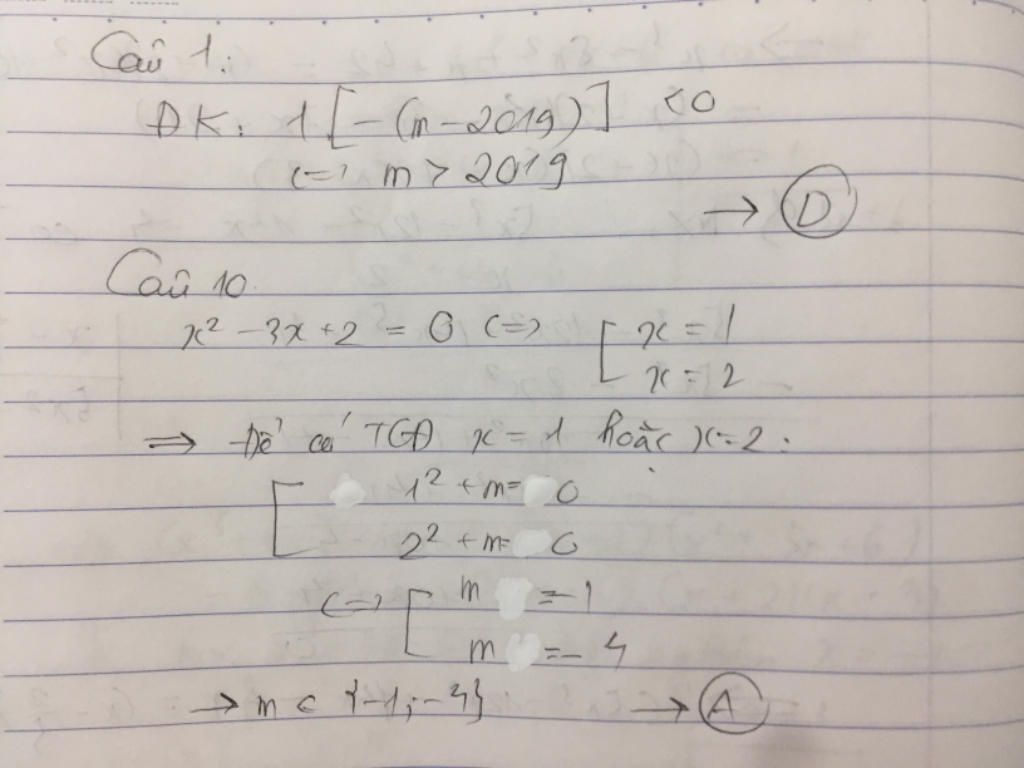 Câu 1:
ĐK: 1 [-(m-2019)] <0
<=> m > 2019
→ D
Câu 10
x² - 3x + 2 = 0 <=> [ x = 1
x = 2
=> Để có TCĐ x = 1 hoặc x = 2 :
[ 1² + m = 0
2² + m = 0
<=> [ m = -1
m = -4
→ m ∈ {-1; -4} → A